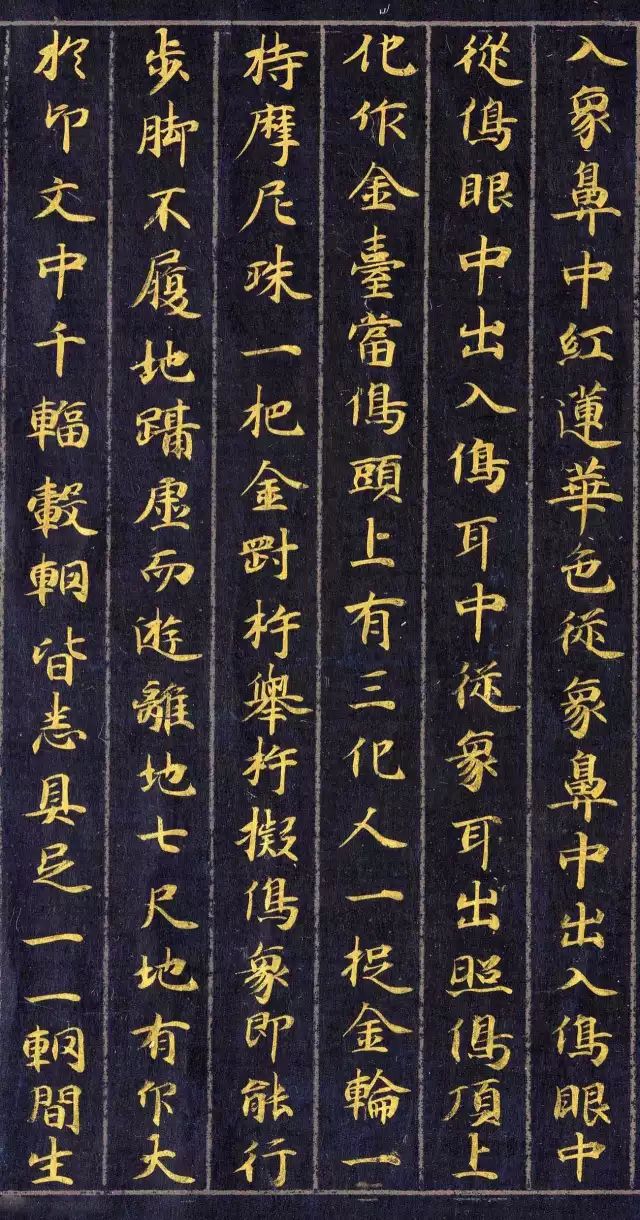 入象鼻中紅蓮華色從象鼻中出入像眼中
從像眼中出入像耳中從象耳出照像頂上
化作金臺當像頭上有三化人一捉金輪一
持摩尼珠一把金剛杵舉杵擬像象即能行
步脚不履地躡虛而遊離地七尺地有印文
於印文中千輻轂輞皆悉具足一一輞間生